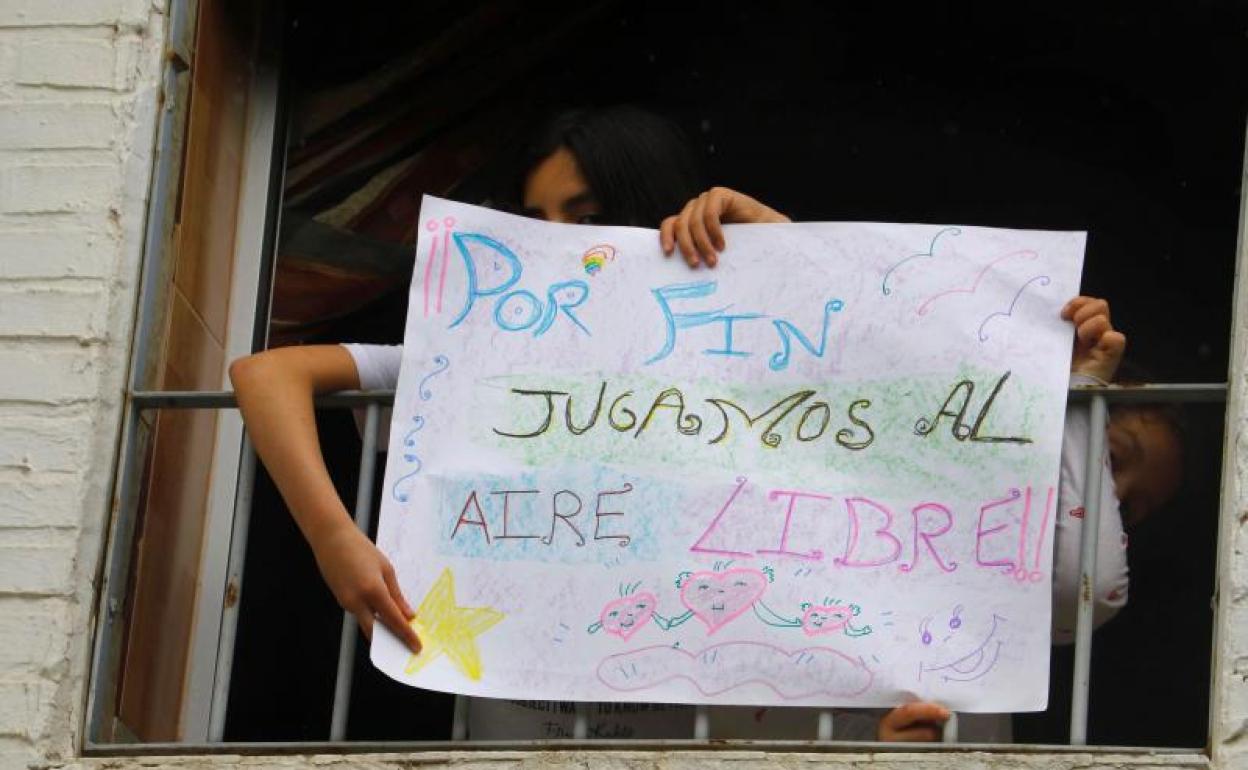 ¡¡POR FIN
JUGAMOS AL
AIRE LIBRE!!